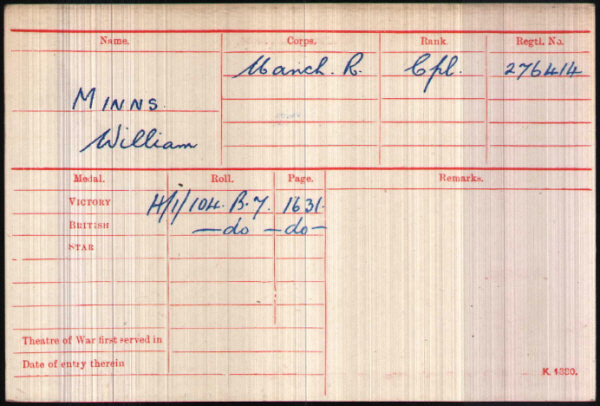 Name. Corps. Rank. Regtl. No.
Manch. R. Cpl. 276414
MINNS.
William
Medal. Roll. Page. Remarks.
VICTORY H/1/104. B.7. 1631.
BRITISH —do —do—
STAR
Theatre of War first served in
Date of entry therein
K. 1380.